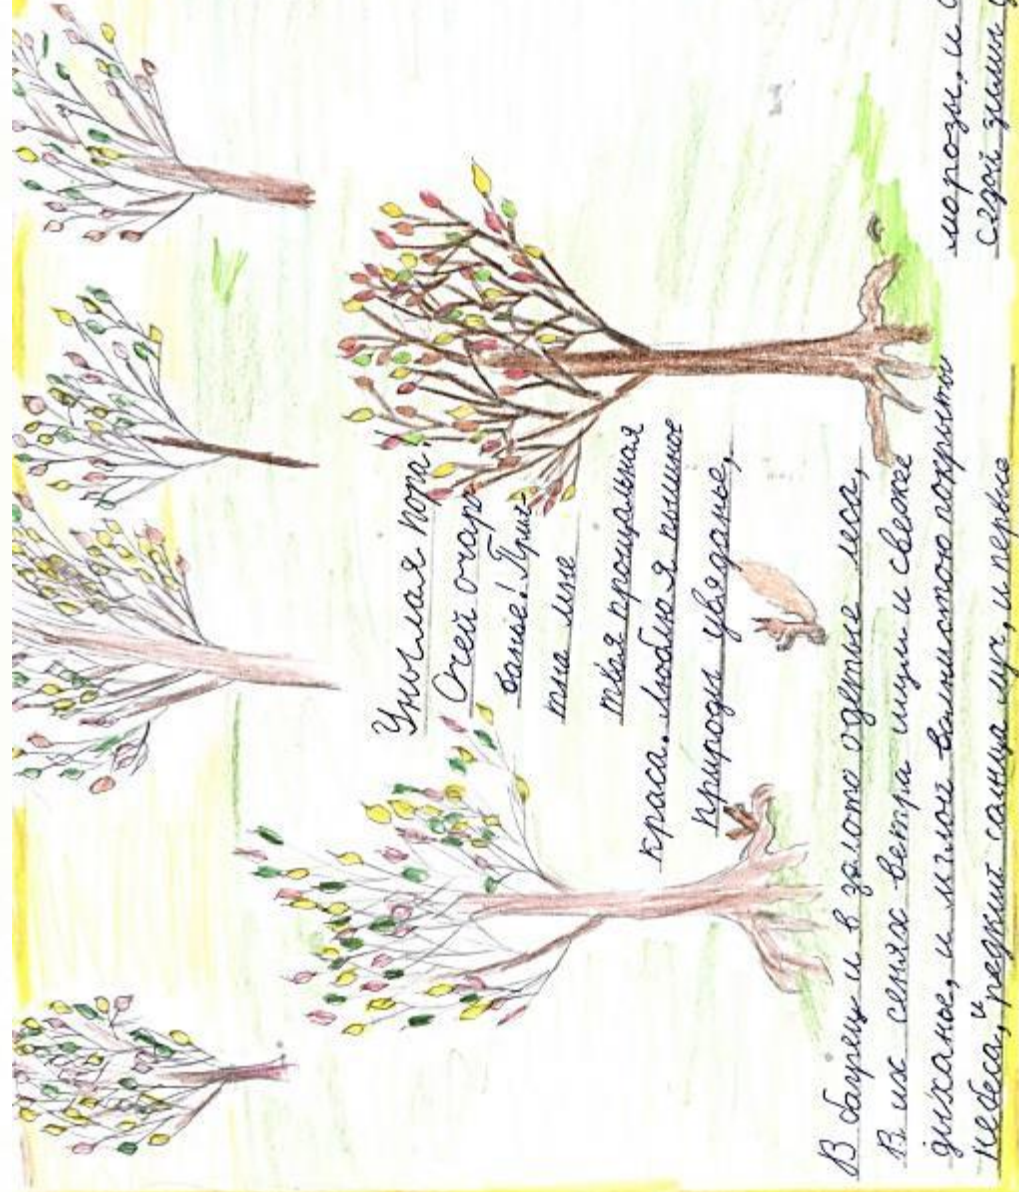 Унылая пора!
Очей очаро
ванье! Прия-
тна мне
твоя прощальная
краса. Люблю я пышное
природы увяданье,
В багрец и в золото одетые леса,
В их сенях ветра шум и свежее
дыханье, и мглой волнистою покрыты
небеса, и редкий солнца луч, и первые
морозы, и
седой зимы